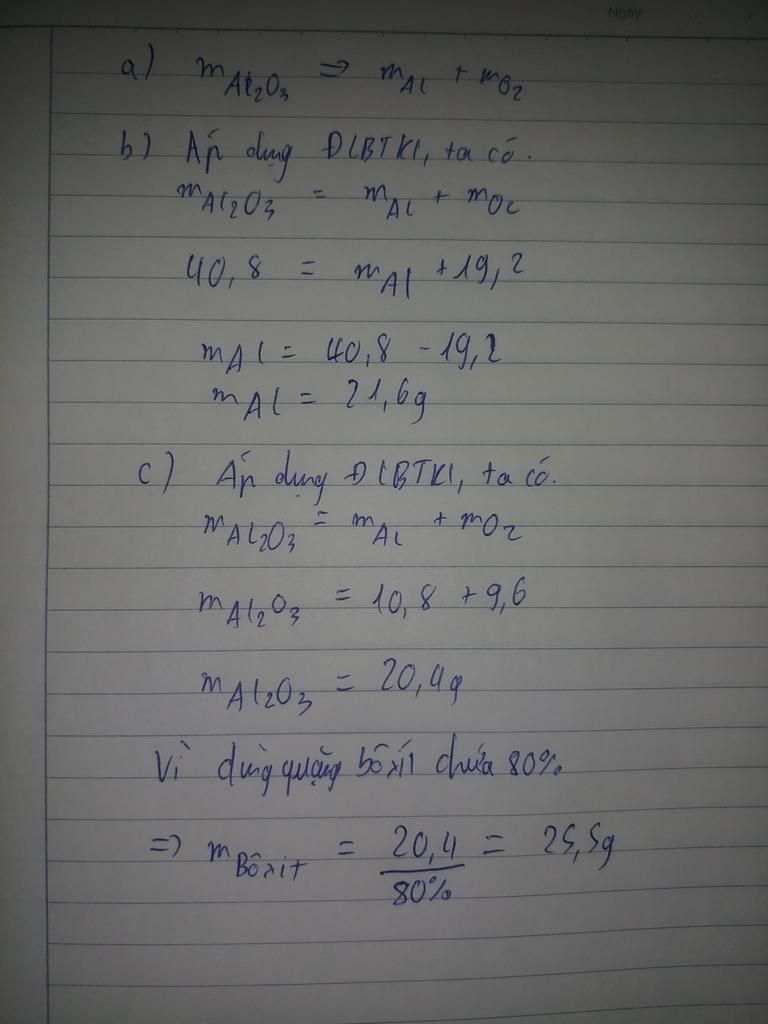 Ngày
a) mAl2O3 ⇒ mAl + mO2
b) Áp dụng ĐLBTKL, ta có.
mAl2O3 = mAl + mO2
40,8 = mAl + 19,2
mAl = 40,8 - 19,2
mAl = 21,6g
c) Áp dụng ĐLBTKL, ta có.
mAl2O3 = mAl + mO2
mAl2O3 = 10,8 + 9,6
mAl2O3 = 20,4g
Vì dùng quặng bôxít chứa 80%
=> mBôxit = 20,4 = 25,5g
80%